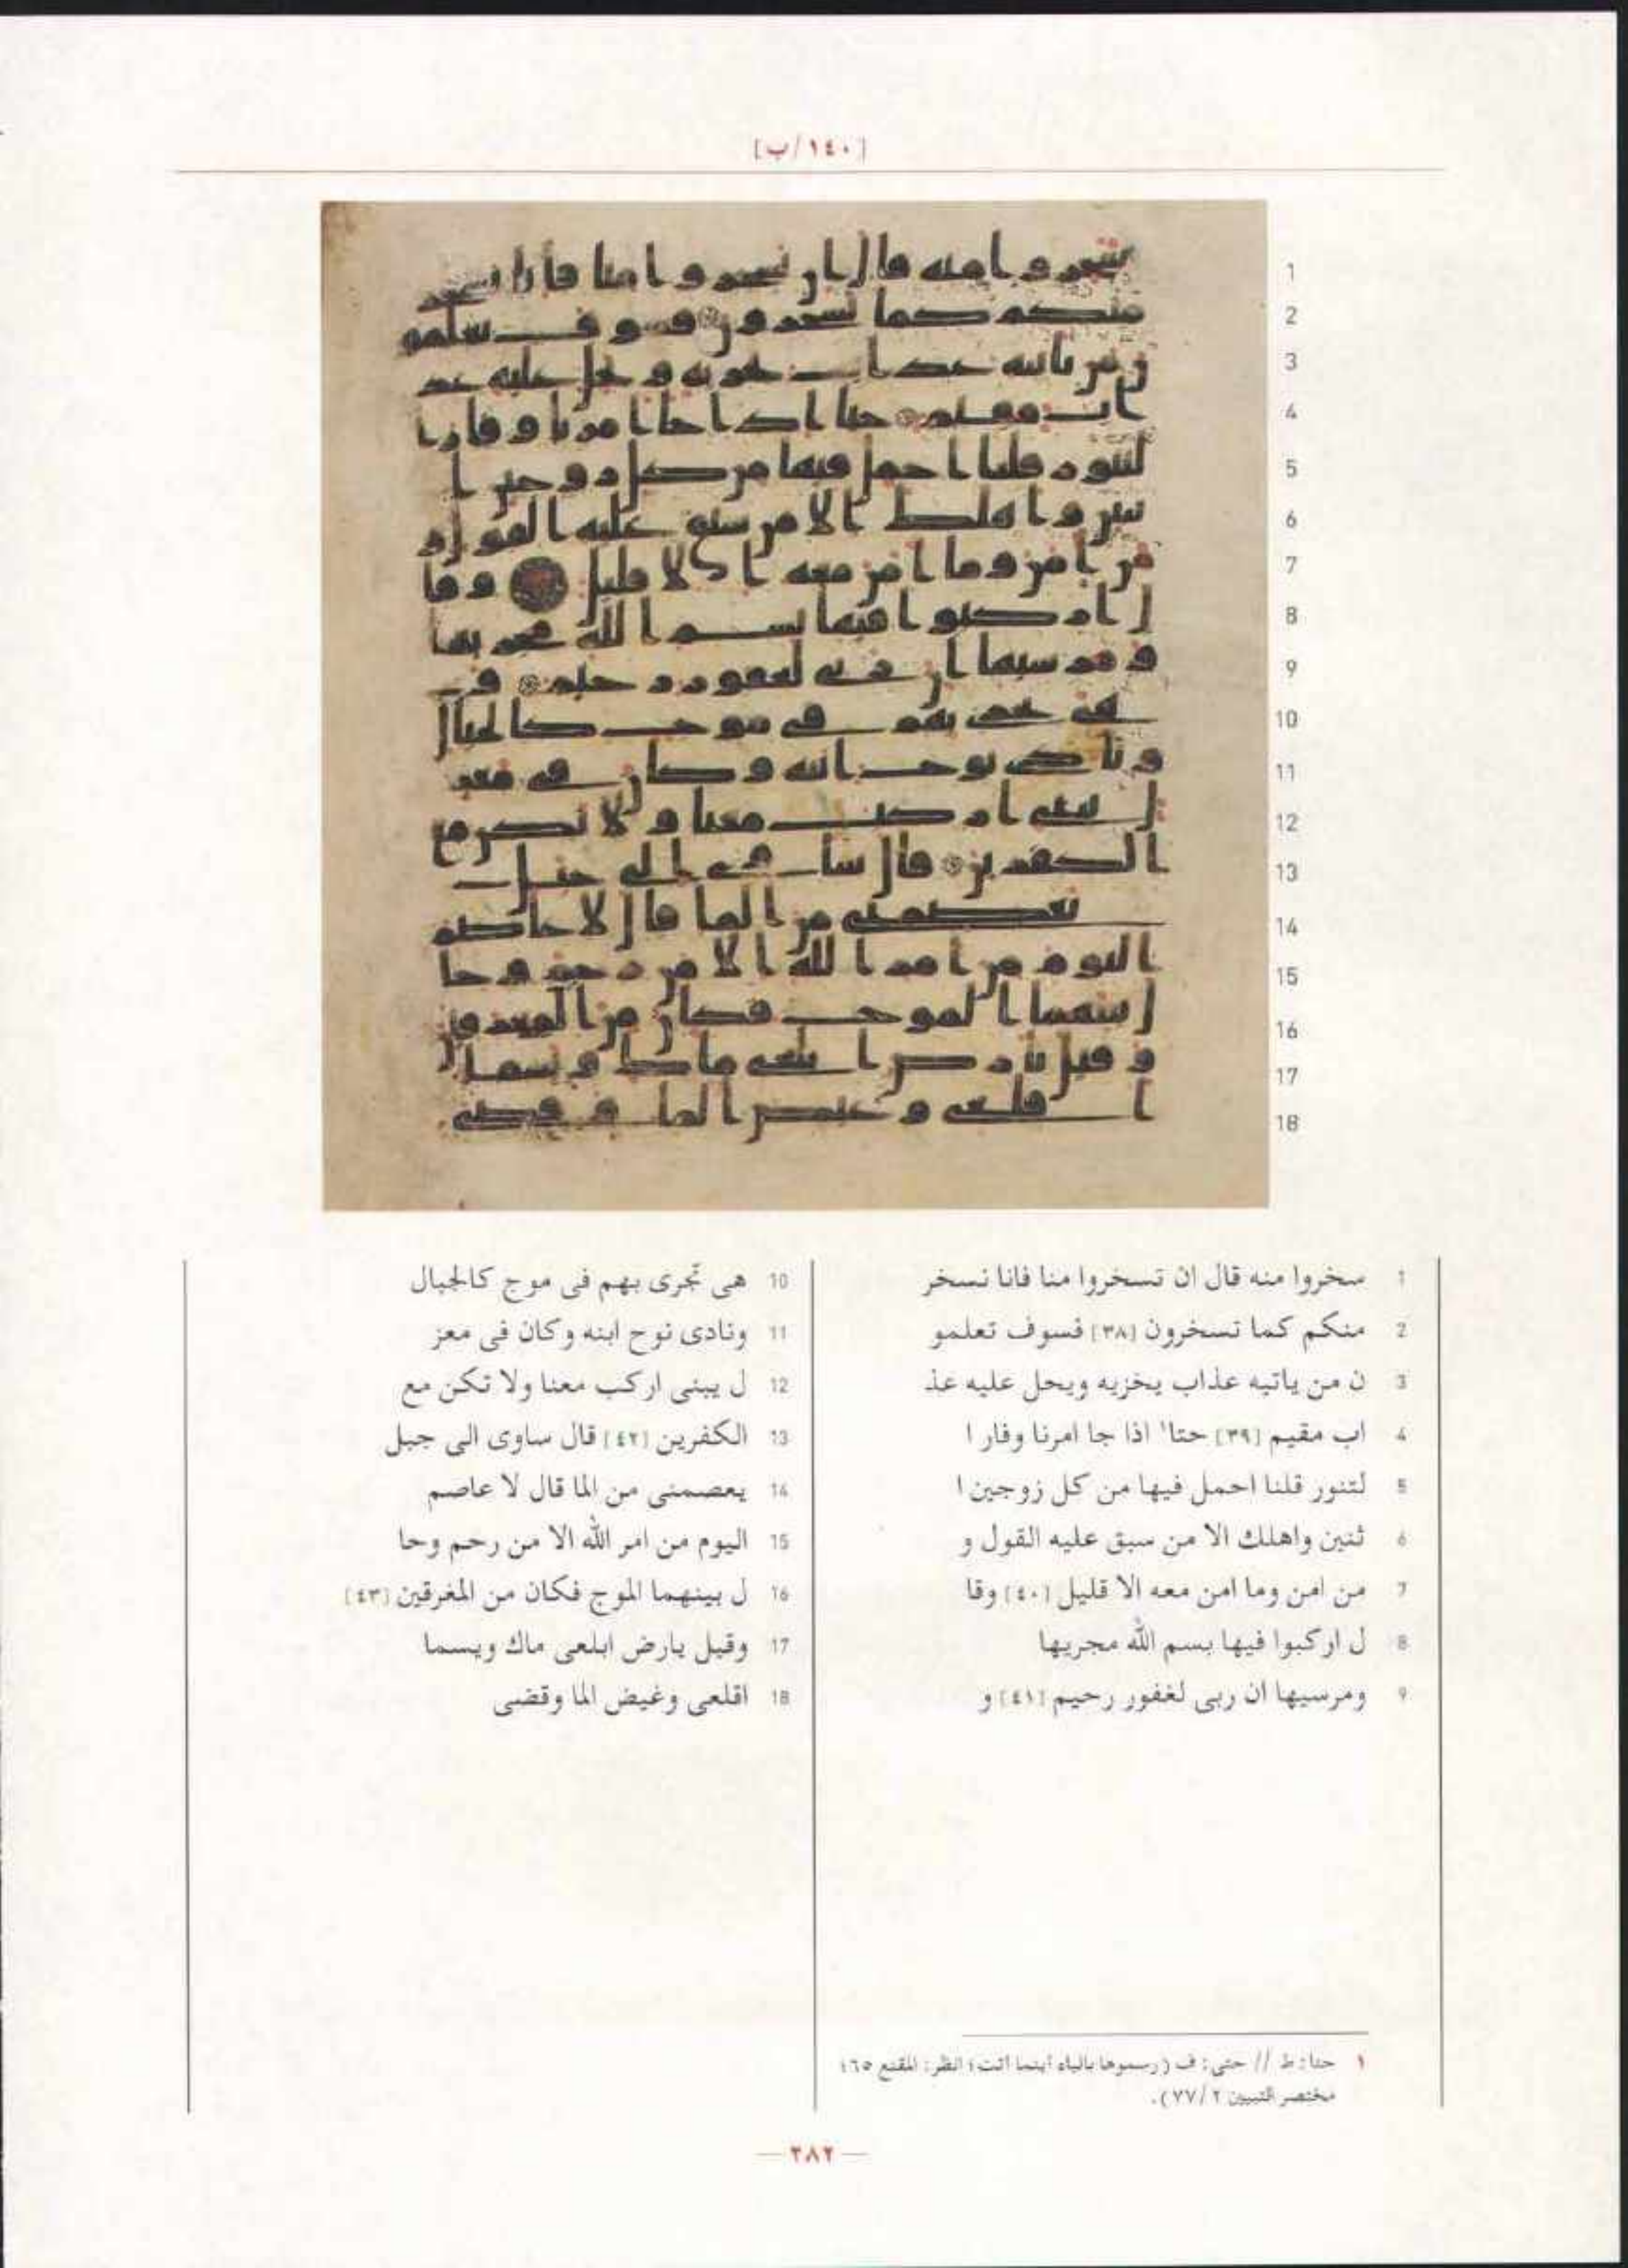 [١٤٠/ب]
1 سخروا منه قال ان تسخروا منا فانا نسخر
2 منكم كما تسخرون [٣٨] فسوف تعلمو
3 ن من ياتيه عذاب يخزيه ويحل عليه عذ
4 اب مقيم [٣٩] حتا١ اذا جا امرنا وفار ا
5 لتنور قلنا احمل فيها من كل زوجين ا
6 ثنين واهلك الا من سبق عليه القول و
7 من امن وما امن معه الا قليل [٤٠] وقا
8 ل اركبوا فيها بسم الله مجريها
9 ومرسيها ان ربى لغفور رحيم [٤١] و
10 هى تجرى بهم فى موج كالجبال
11 ونادى نوح ابنه وكان فى معز
12 ل يبنى اركب معنا ولا تكن مع
13 الكفرين [٤٢] قال ساوى الى جبل
14 يعصمنى من الما قال لا عاصم
15 اليوم من امر الله الا من رحم وحا
16 ل بينهما الموج فكان من المغرقين [٤٣]
17 وقيل يارض ابلعى ماك ويسما
18 اقلعى وغيض الما وقضى
١ حتا: ط // حتى: ف (رسموها بالياء أينما أتت؛ انظر: المقنع ٦٥؛
مختصر التبيين ٢/٧٧).
— ٢٨٢ —